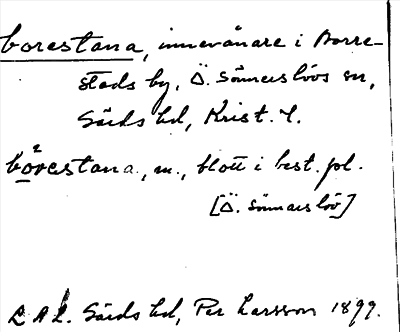 borestana, innevånare i Borre-
stads by, Ö. Sönnarslövs sn,
Gärds hd, Krist. l.
bòrestana, m., blott i best. pl.
[Ö. Sönnarslöv]
L A L. Gärds hd, Per Larsson 1899.